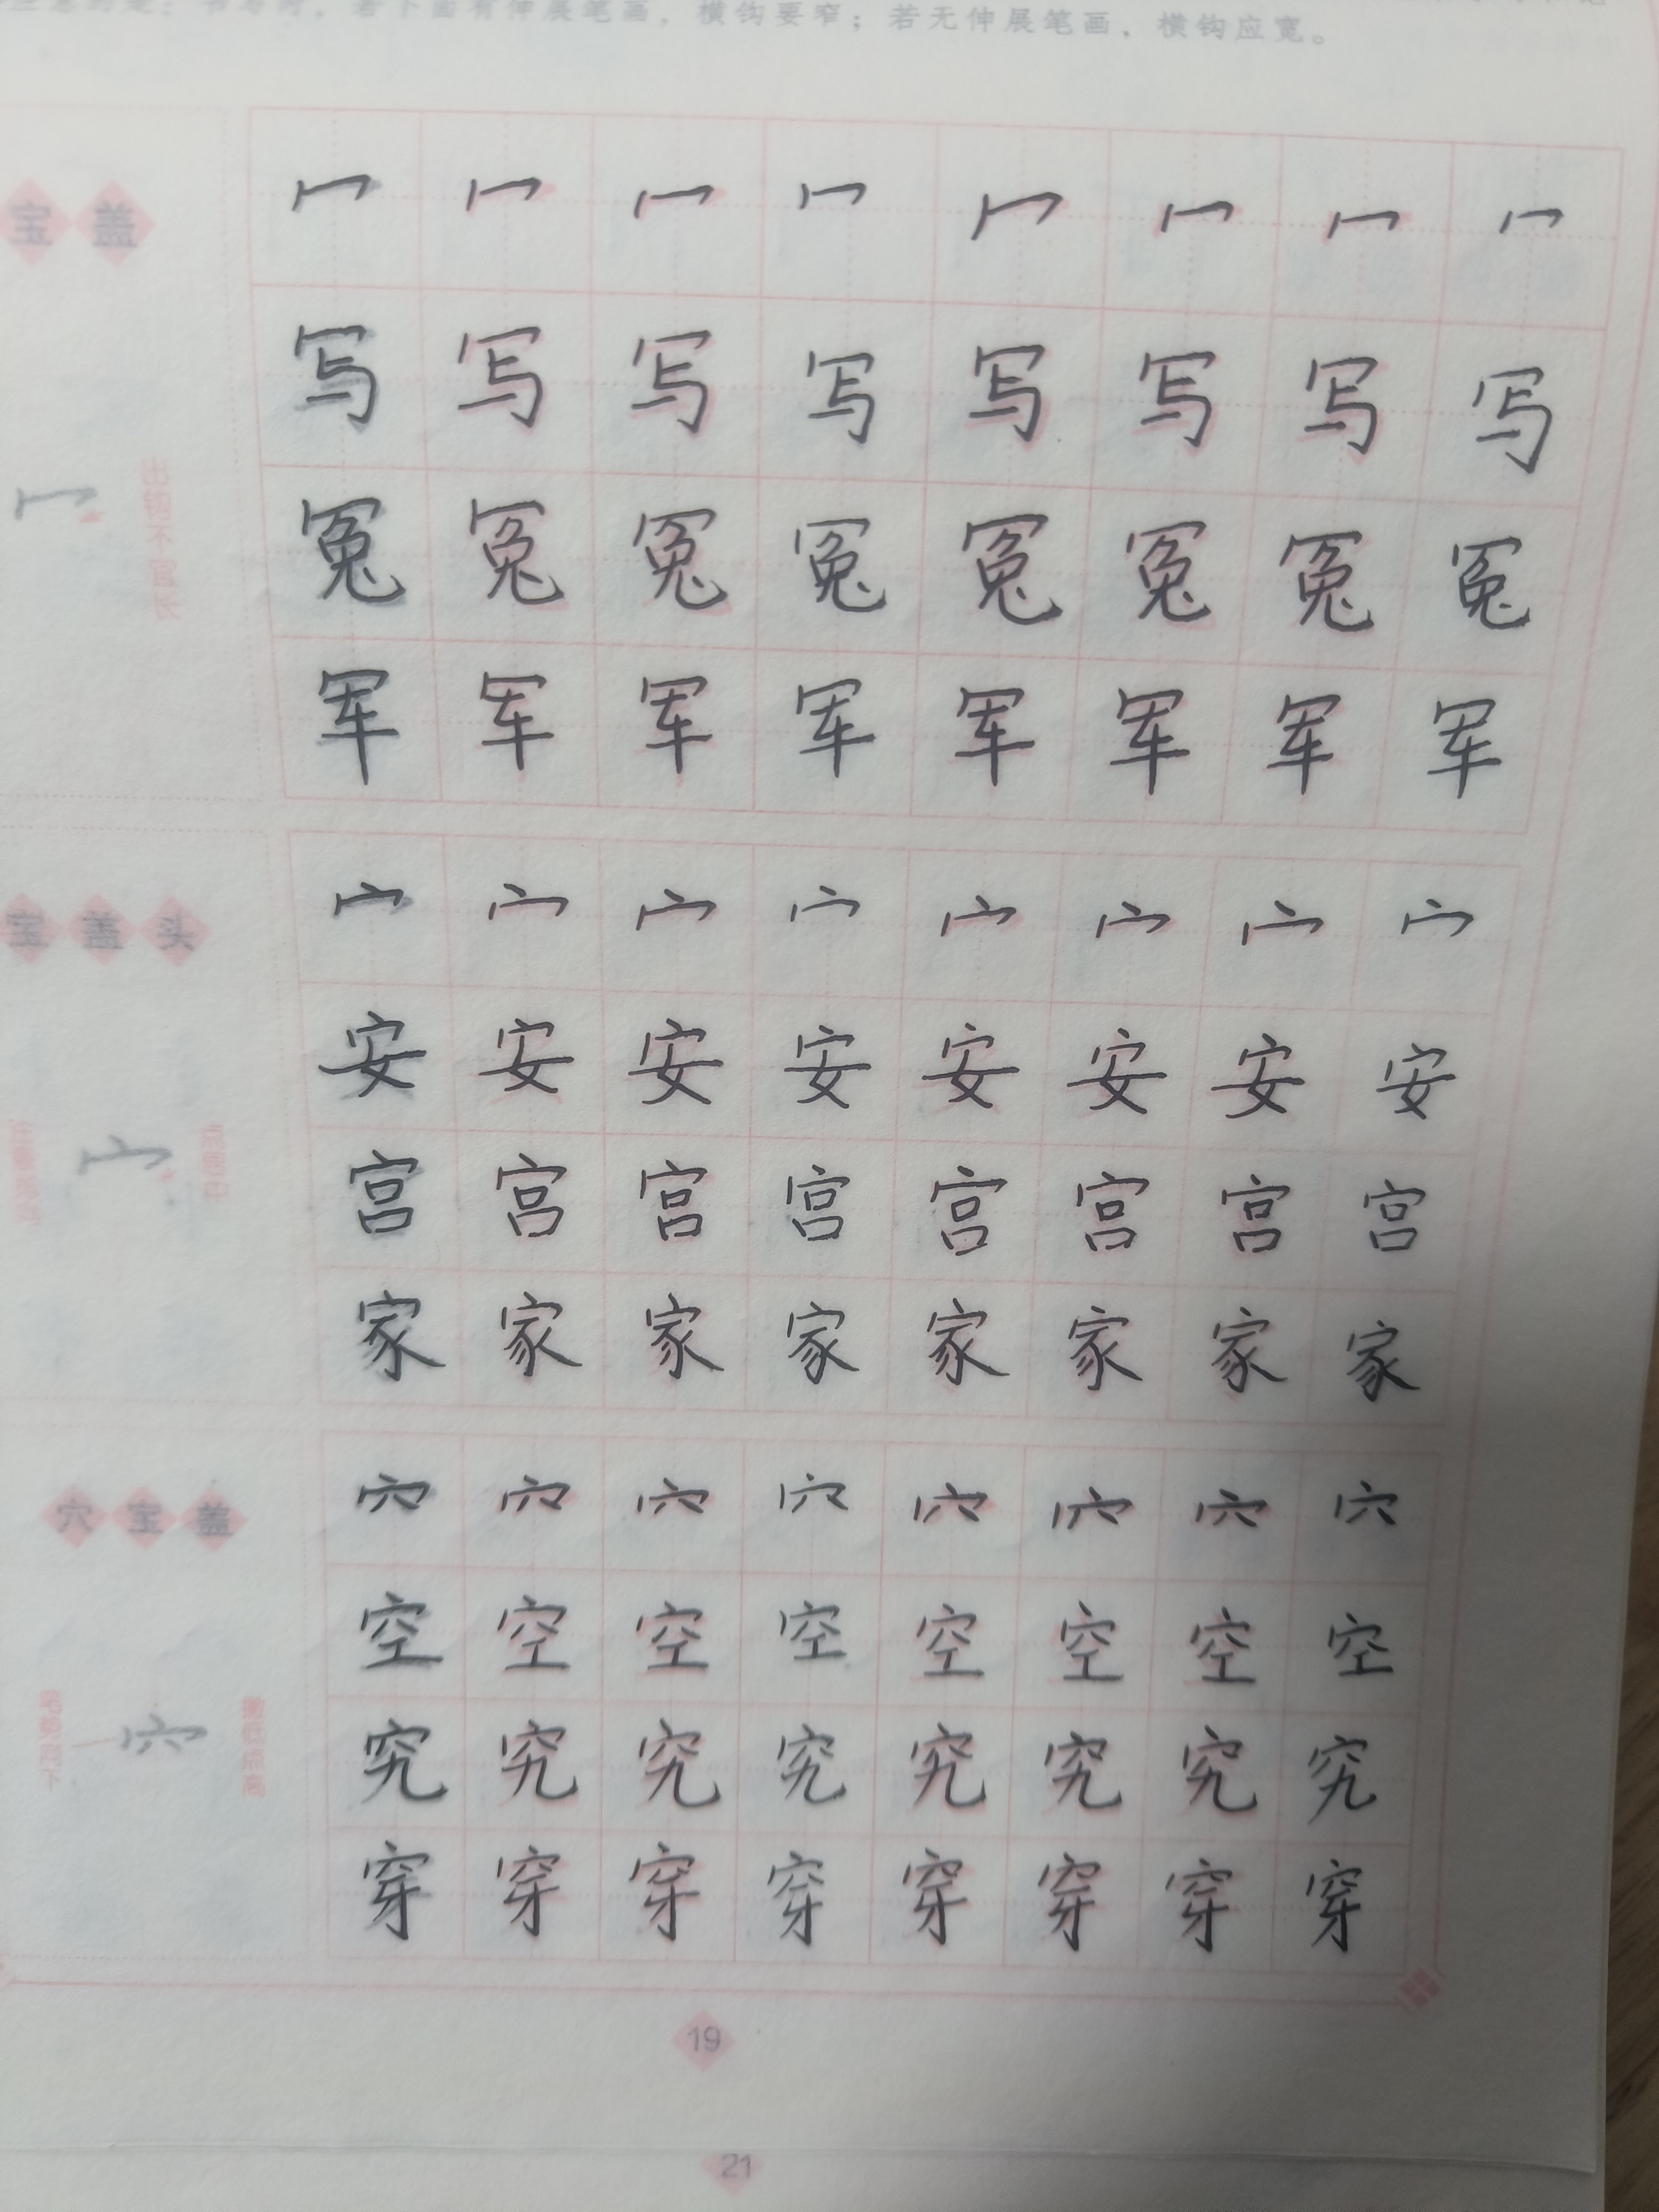 书写时，若下面有伸展笔画，横钩要窄；若无伸展笔画，横钩应宽。
宝盖
冖冖冖冖冖冖冖冖
写写写写写写写写
出钩不宜长
冤冤冤冤冤冤冤冤
军军军军军军军军
宝盖头
宀宀宀宀宀宀宀宀
安安安安安安安安
宫宫宫宫宫宫宫宫
家家家家家家家家
穴宝盖
穴穴穴穴穴穴穴穴
空空空空空空空空
究究究究究究究究
穿穿穿穿穿穿穿穿
19
21